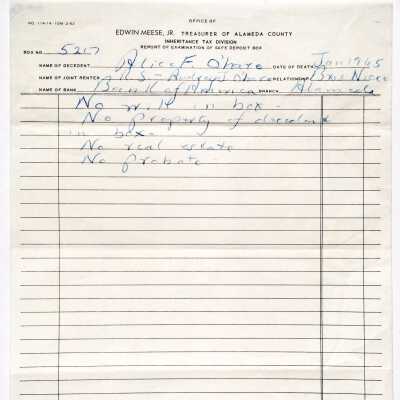 OFFICE OF
NO. 114-14 -10M-2-62
EDWIN MEESE, JR. TREASURER OF ALAMEDA COUNTY
INHERITANCE TAX DIVISION
REPORT OF EXAMINATION OF SAFE DEPOSIT BOX
BOX NO. 5217
NAME OF DECEDENT Alice F. O'hare DATE OF DEATH Jan 1965
NAME OF JOINT RENTER RELATIONSHIP Niece
NAME OF BANK Bank of America BRANCH Alameda
No will in box -
No property of decedent
in box -
No real estate
No probate